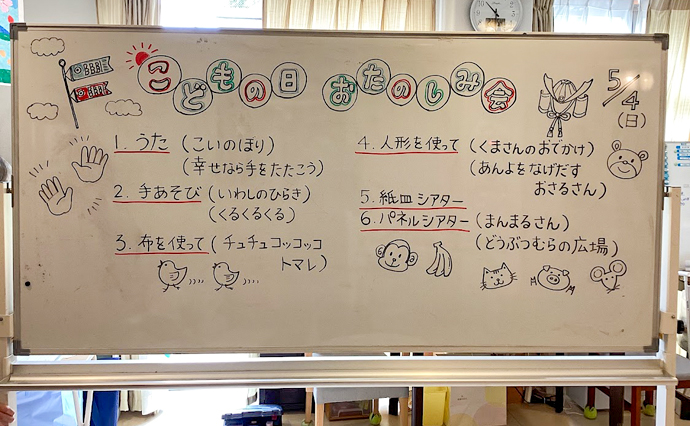 こどもの日 おたのしみ会
5/4
(日)
1. うた (こいのぼり)
(幸せなら手をたたこう)
2. 手あそび (いわしのひらき)
(くるくるくる)
3. 布を使って (チュチュコッコッコ
トマレ)
4. 人形を使って (くまさんのおでかけ)
(あんよをなげだす
おさるさん)
5. 紙皿シアター
6. パネルシアター (まんまるさん)
(どうぶつむらの広場)